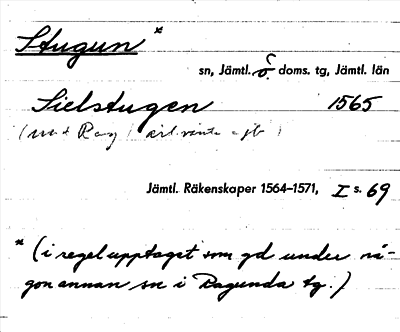 Stugun *
sn, Jämtl. ö. doms. tg, Jämtl. län
Sielstugen 1565
(med Rag
Jämtl. Räkenskaper 1564–1571, I s. 69
* (i regel upptaget som gd under nå-
gon annan sn i Ragunda tg.)